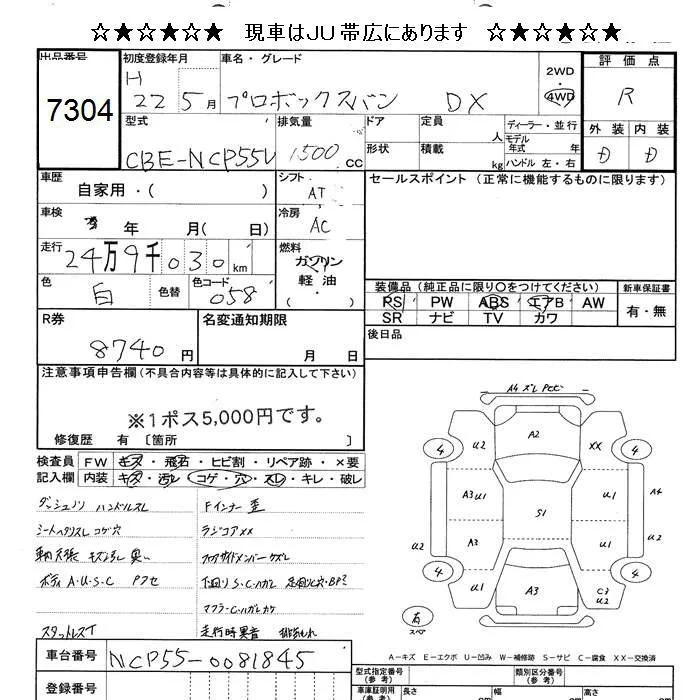 ☆★☆★☆★ 現車はJU帯広にあります ☆★☆★☆★
出品番号 7304
初度登録年月 H 22 5月
車名・グレード プロボックスバン DX
2WD ・ 4WD
評価点 R
外装 D 内装 D
型式 CBE-NCP55V
排気量 1500 CC
ドア 形状
定員 人 積載 kg
ディーラー・並行
モデル年式 年
ハンドル 左・右
車歴 自家用・( )
シフト AT
セールスポイント (正常に機能するものに限ります)
車検 年 月( 日)
冷房 AC
走行 24万9千030km
燃料 ガソリン 軽油 ・( )
色 白 色替 色コード 058
装備品 (純正品に限り○をつけてください)
新車保証書 有・無
PS PW ABS エアB AW
SR ナビ TV カワ
R券 8740円
名変通知期限 月 日
後日品
注意事項申告欄(不具合内容等は具体的に記入して下さい)
※1ポス5,000円です。
修復歴 有 〔箇所 〕
検査員記入欄
FW キズ・飛石・ヒビ割・リペア跡・×要
内装 キズ・汚レ・コゲ・穴・スレ・キレ・破レ
ダッシュノリ ハンドルスレ
Fインナー 歪
シートヘタリスレ コゲ穴
ラジコアXX
ボディ A・U・S・C
下回りS・C・ハガレ
マフラーC・ハガレ
スタットレスT
走行時異音
車台番号 NCP55-0081845
登録番号
A2
U2
XX
4
4
A3 U1
S1
U1
A4
U2
A3
U1
U2
4
4
U1
A3
C3 U2
有 スペア
A－キズ E－エクボ U－凹み W－補修跡 S－サビ C－腐食 XX－交換済
型式指定番号 (参考)
類別区分番号 (参考)
車庫証明用 (参考)
長さ cm
幅 cm
高さ